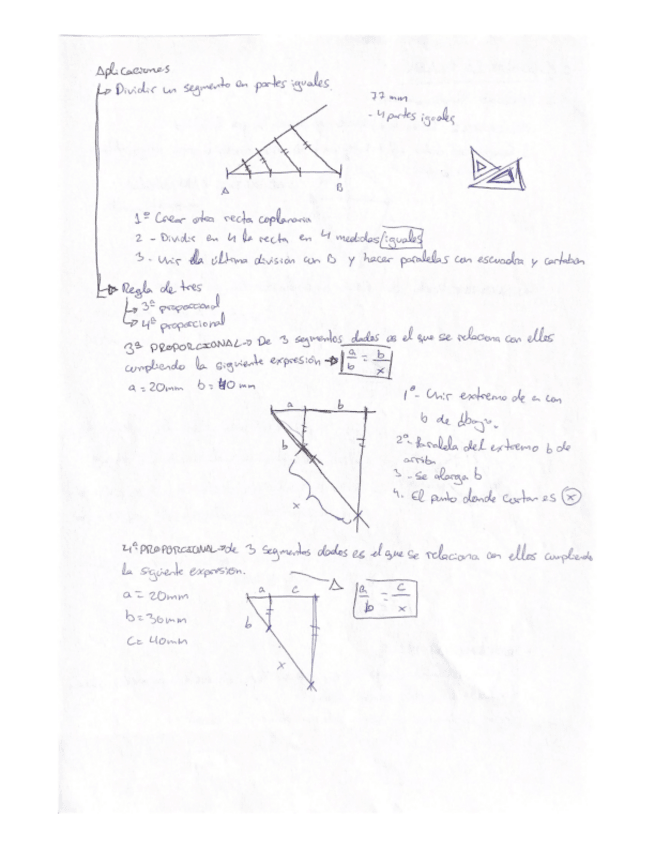 Aplicaciones
Dividir un segmento en partes iguales.
77 mm
- 4 partes iguales
A
B
1º Crear otra recta coplanaria
2 - Dividir en 4 la recta en 4 medidas iguales
3 - Unir la última división con B y hacer paralelas con escuadra y cartabón
Regla de tres
3ª proporcional
4ª proporcional
3ª PROPORCIONAL → De 3 segmentos dados es el que se relaciona con ellos
cumpliendo la siguiente expresión → a/b = b/x
a = 20mm b = 40 mm
a b
b
x
1º- Unir extremo de a con
b de abajo.
2º- Paralela del extremo b de
arriba
3 - Se alarga b
4. El punto donde cortan es x
4ª PROPORCIONAL → de 3 segmentos dados es el que se relaciona con ellos cumpliendo
la siguiente expresión.
a = 20mm
b = 30mm
c = 40mm
a c
b
x
a/b = c/x